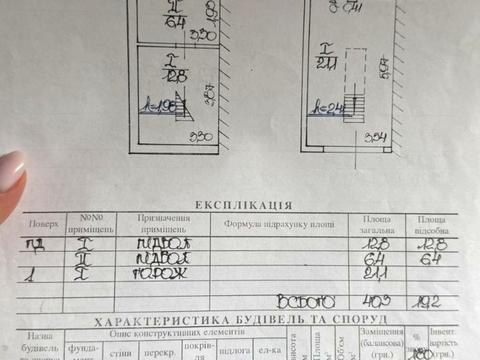 II
6.4
3,30
I
12.8
3,87
h=1.98
3,30
I
21.1
5,97
h=2.41
3,54
ЕКСПЛІКАЦІЯ
Поверх №№ приміщень Призначення приміщень Формула підрахунку площі Площа загальна Площа підсобна
пд I підвал 12.8 12.8
II підвал 6.4 6.4
1 I гараж 21.1
Всього 40.3 19.2
ХАРАКТЕРИСТИКА БУДІВЕЛЬ ТА СПОРУД
Назва будівель Опис конструктивних елементів Площа Об'єм Заміщення (балансова) (грн.) Інвент. вартість (грн.)
фунда- стіни перекр. покрів- підлога ел-ка